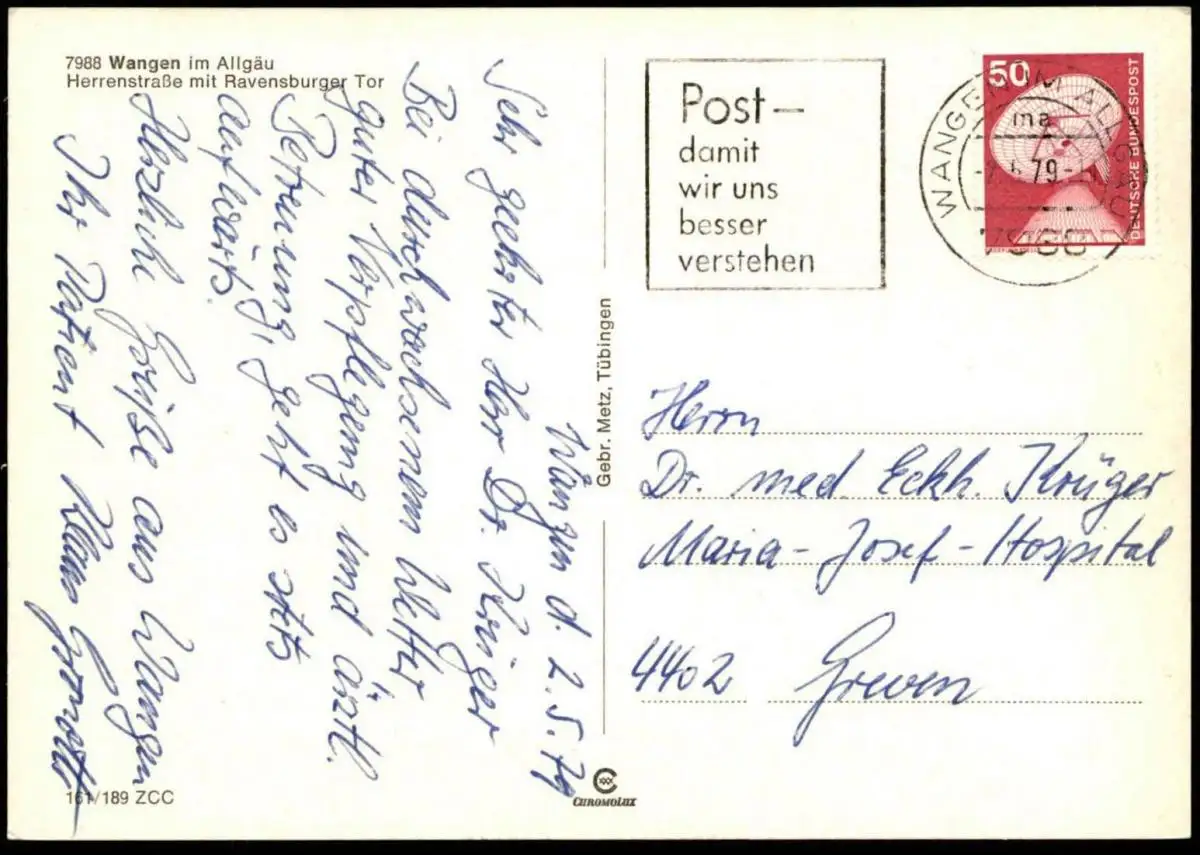 7988 Wangen im Allgäu
Herrenstraße mit Ravensburger Tor
Wangen d. 2.5.79
Sehr geehrter Herr Dr. Krüger
Bei durchwachsenem Wetter
guter Verpflegung und ärztl.
Betreuung, geht es stets
aufwärts.
Herzliche Grüße aus Wangen
Ihr Patient Klaus
161/189 ZCC
Gebr. Metz, Tübingen
CHROMOLUX
Post –
damit
wir uns
besser
verstehen
WANGEN IM ALLGÄU
ma
79
50
DEUTSCHE BUNDESPOST
Herrn
Dr. med. Eckh. Krüger
Maria-Josef-Hospital
4402 Greven